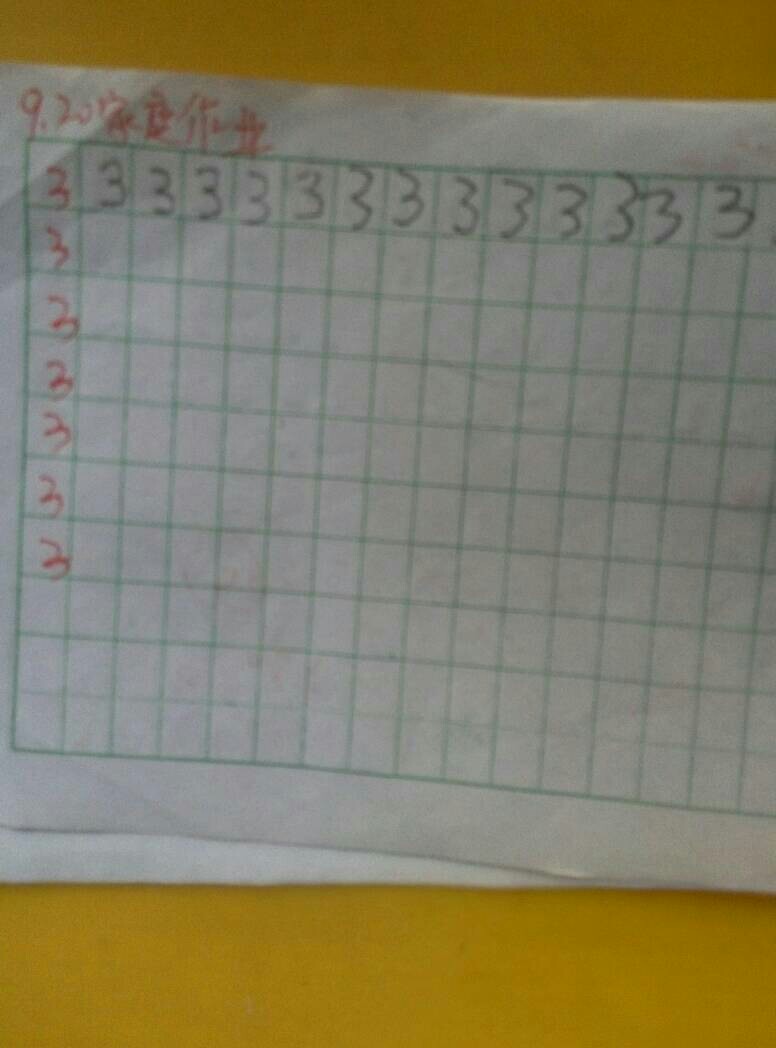 9.20家庭作业
3 3 3 3 3 3 3 3 3 3 3 3 3 3
3
3
3
3
3
3